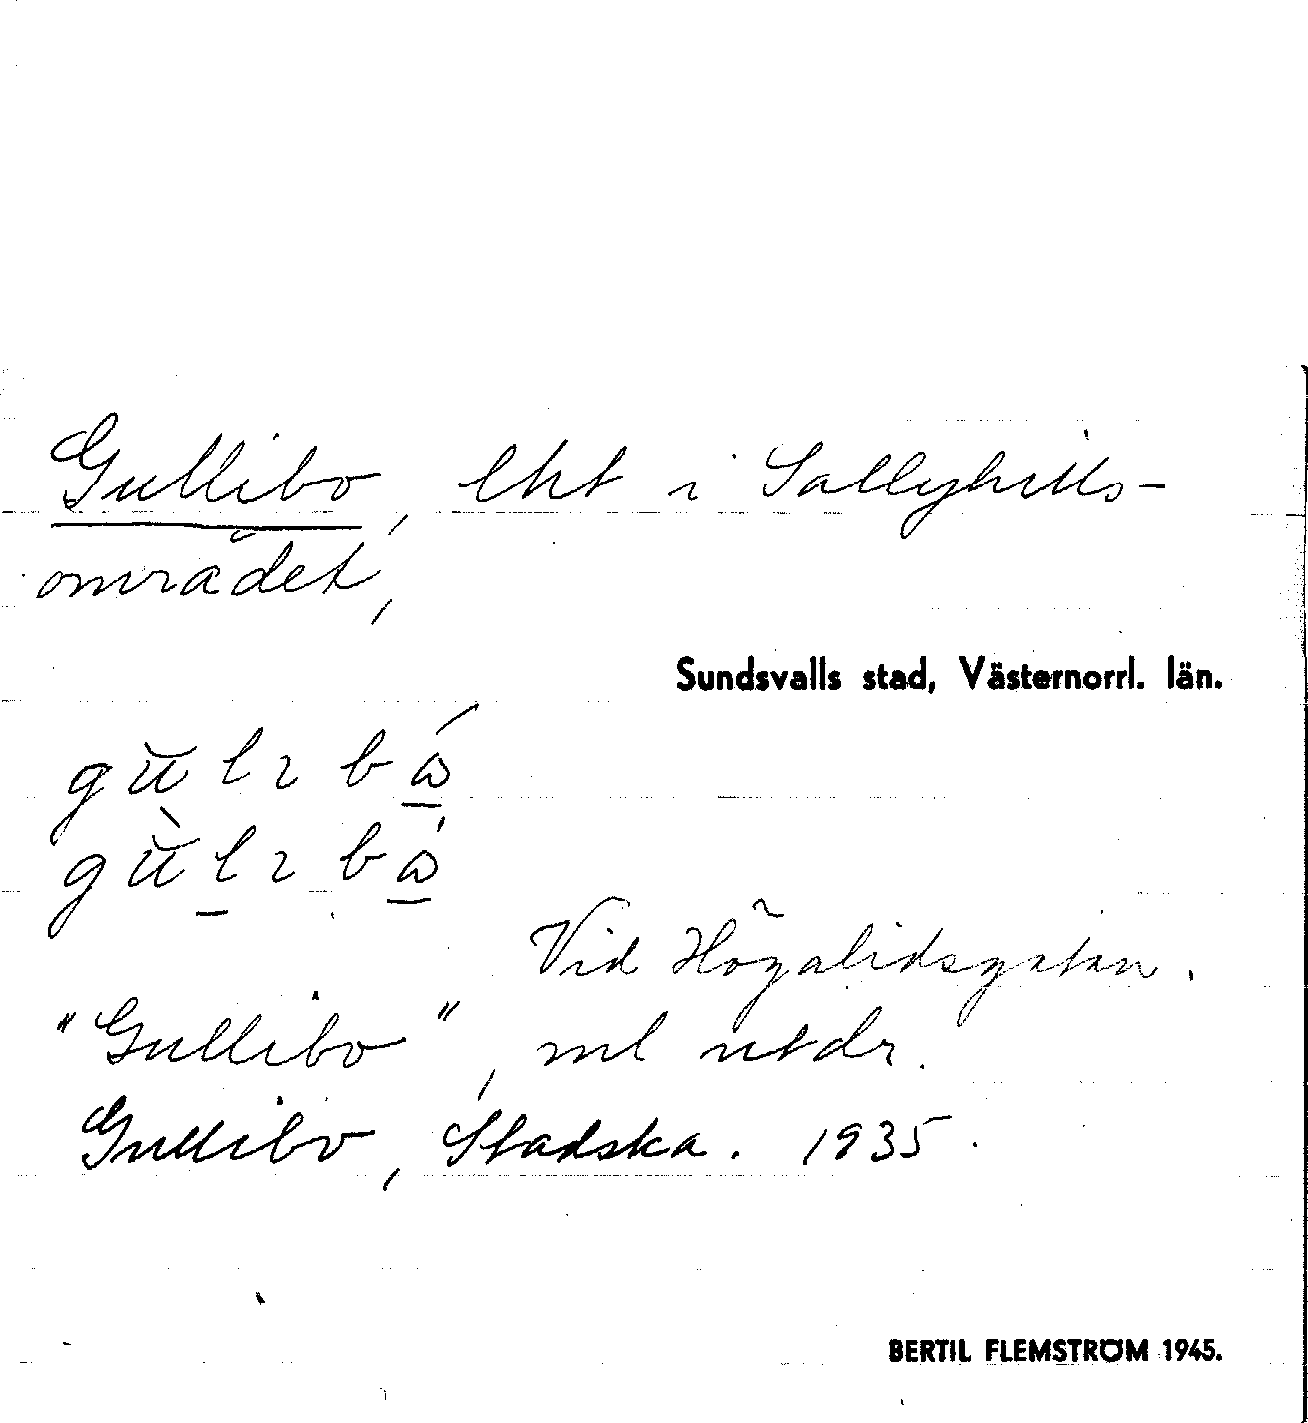 Gullibo, lht i Sallyhills-
området,
Sundsvalls stad, Västernorrl. län.
gù̆lıbɷ́
gù̆lıbɷ́
Vid Högalidsgatan.
"Gullibo", ml utdr.
Gullibo, Stadska. 1935.
BERTIL FLEMSTRÖM 1945.